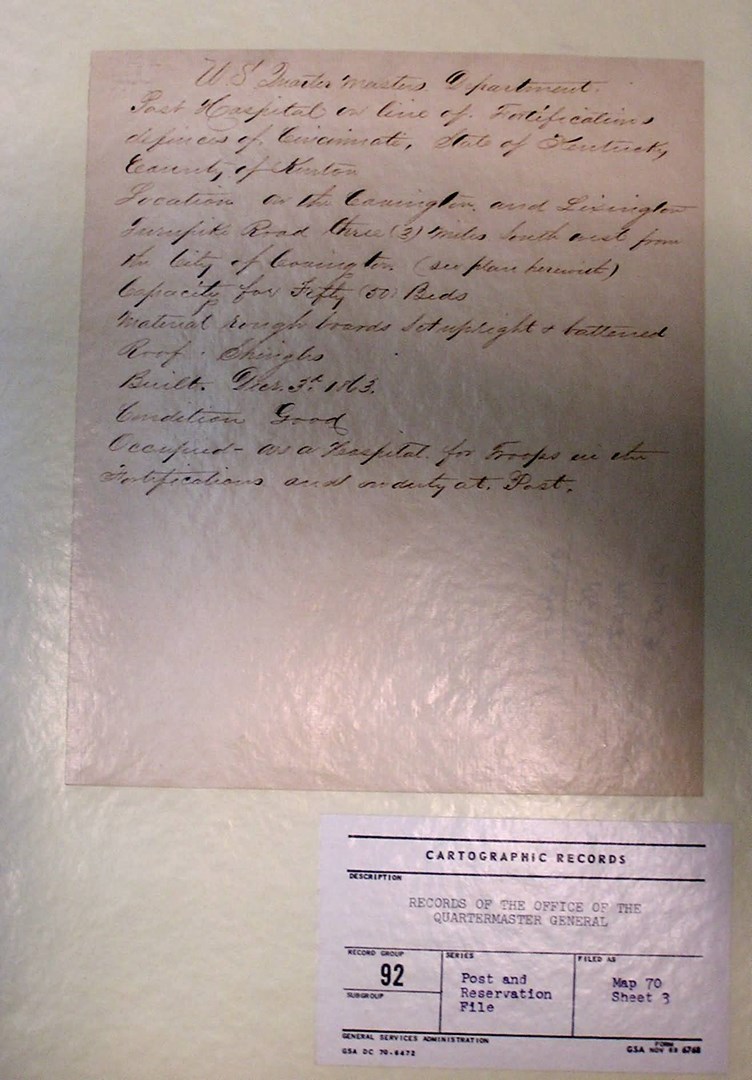 U.S Quarter Masters Department.
Post Hospital on line of Fortifications
defences of Cincinnati, State of Kentucky
County of Kenton
Location on the Covington and Lexington
Turnpike Road three (3) Miles South west from
the City of Covington (see plan herewith)
Capacity for Fifty (50) Beds
Material rough boards set upright & battened
Roof. Shingles
Built. Decr. 3d. 1863.
Condition Good
Occupied - as a Hospital for Troops in the
Fortifications and on duty at. Post.
CARTOGRAPHIC RECORDS
DESCRIPTION
RECORDS OF THE OFFICE OF THE
QUARTERMASTER GENERAL
RECORD GROUP
92
SUBGROUP
SERIES
Post and
Reservation
File
FILED AS
Map 70
Sheet 3
GENERAL SERVICES ADMINISTRATION
GSA DC 70-6472
FORM
GSA NOV 69 6768